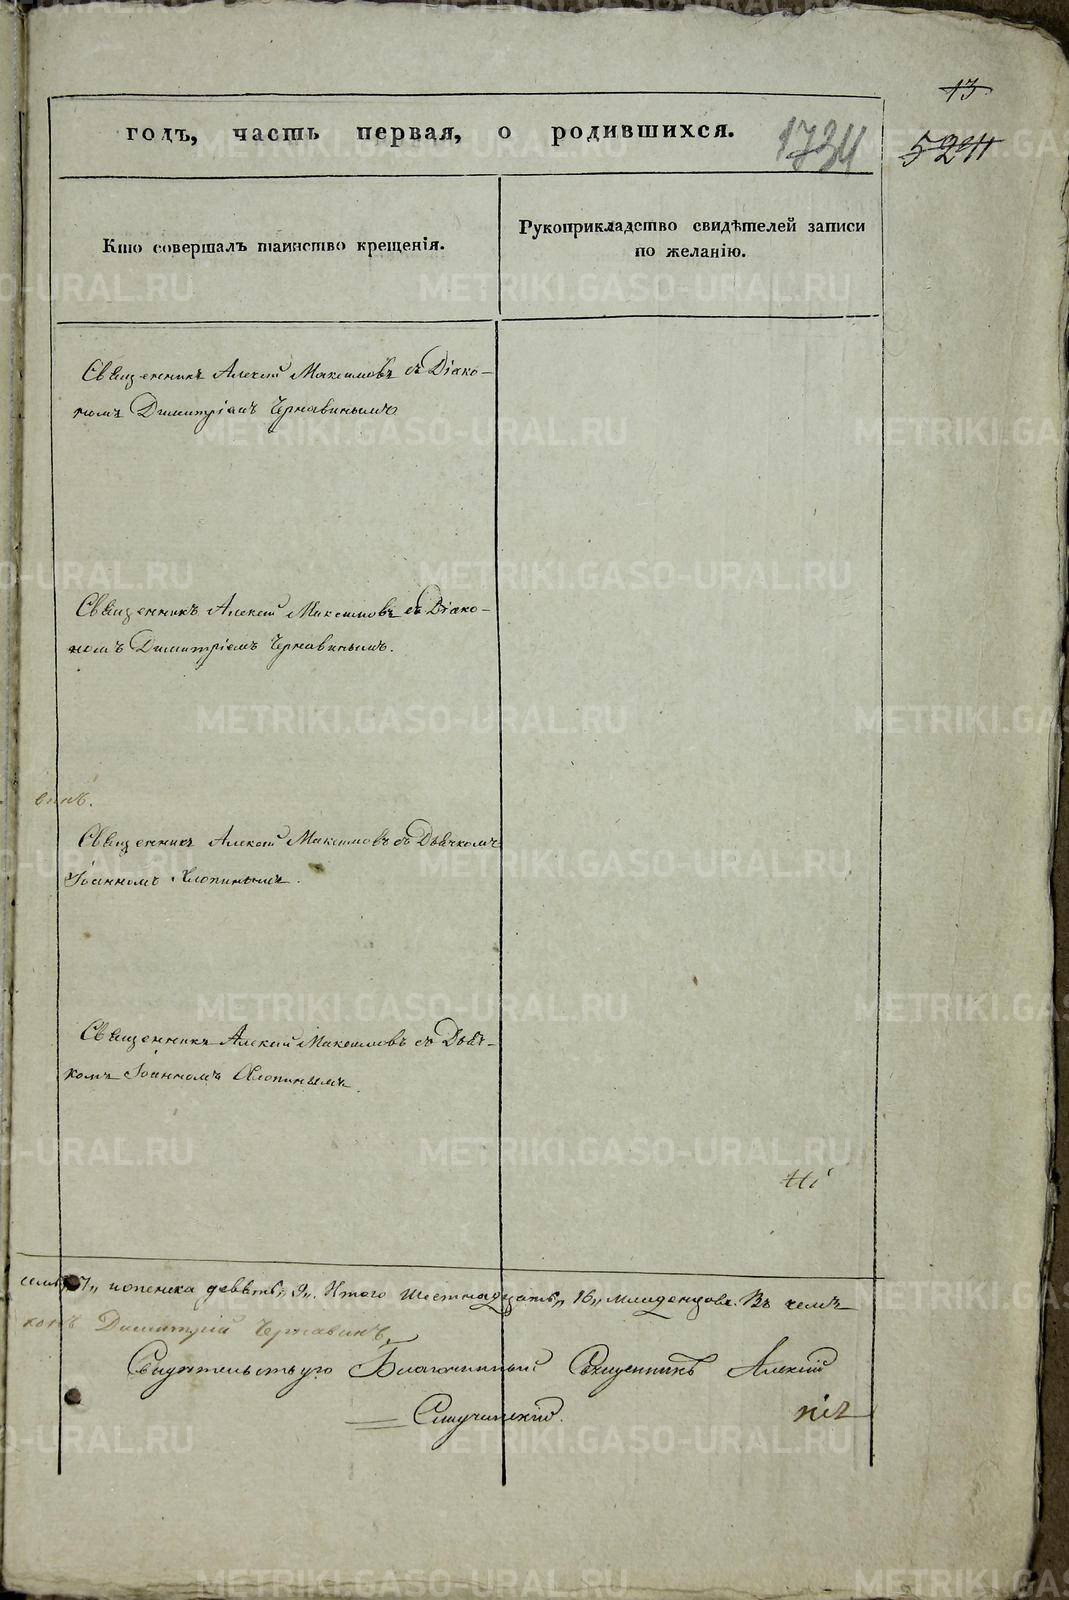 13
годъ, часть первая, о родившихся.
1734
5211
Кто совершалъ таинство крещенія.
Рукоприкладство свидѣтелей записи
по желанію.
Священникъ Алексій Максимовъ съ Діако-
номъ Димитріемъ Чернавинымъ
Священникъ Алексій Максимовъ съ Діако-
номъ Димитріемъ Чернавинымъ.
Священникъ Алексій Максимовъ съ Дьячкомъ
Іоанномъ Хлопинымъ.
Священникъ Алексій Максимовъ съ Дьяч-
комъ Іоанномъ Хлопинымъ.
7„ женска девять„ 9„. Итого шестнадцать„ 16„ младенцовъ. Въ чемъ
конъ Димитрій Чернавинъ.
Свидѣтельствую Благочинный Священникъ Алексій
METRIKI.GASO-URAL.RU